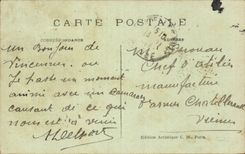 CARTE POSTALE
CORRESPONDANCE
Un Bonjour de
Vincennes ou
Je passe un moment
amical avec un camarade
causant de ce qui
nous est à venir
A. Delport
Mr
Chef d'atelier
manufacture
d'armes Chatellerault
Vienne
Edition Artistique C. M., Paris.